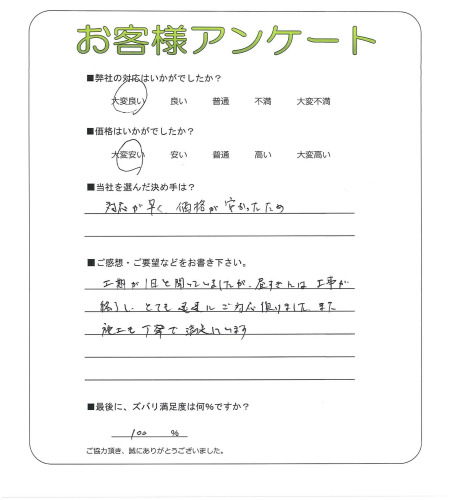 お客様アンケート
■弊社の対応はいかがでしたか？
大変良い 良い 普通 不満 大変不満
■価格はいかがでしたか？
大変安い 安い 普通 高い 大変高い
■当社を選んだ決め手は？
対応が早く 価格が安かったため
■ご感想・ご要望などをお書き下さい。
工期が1日と聞いていましたが、昼すぎには工事が
終了し、とても迅速にご対応頂けました。また
施工も丁寧で満足しています
■最後に、ズバリ満足度は何％ですか？
100 %
ご協力頂き、誠にありがとうございました。